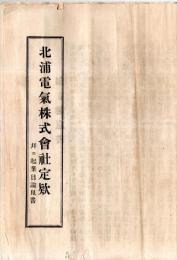 北浦電氣株式會社定欵
幷ニ起業目論見書